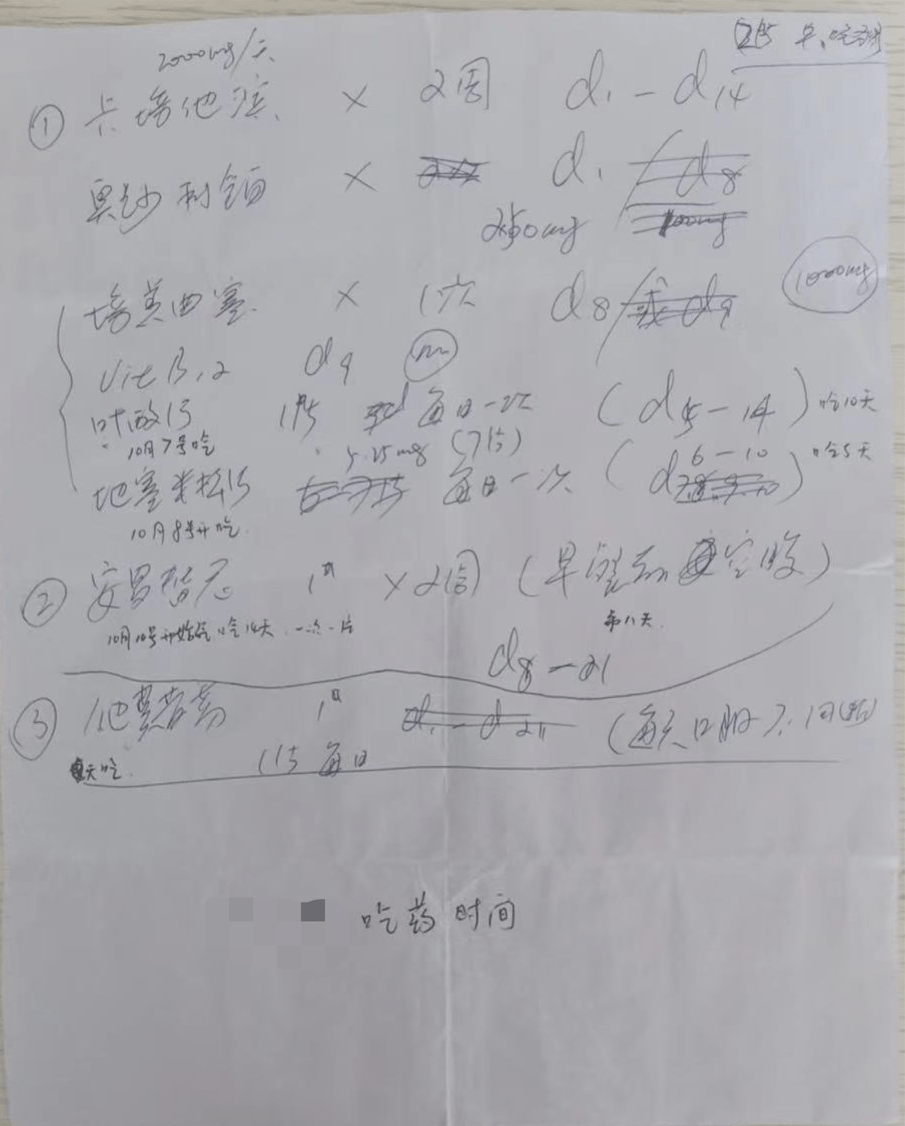 2000mg/天
① 卡培他滨 × 2周 d1-d14
奥沙利铂 × d1
250mg
培美曲塞 × 1次 d8 1000mg
Vit B12 d9
叶酸片 1片 每日一次 (d5-14) 吃10天
10月7号吃
5.25mg (7片)
地塞米松片 每日一次 (d6-10) 吃5天
10月8号开吃
② 安罗替尼 1# ×2周 (早餐前空腹)
10月10号开始吃 吃14天 一次一片
第八天
d8-21
③ 1# (每天口服
天吃 1片 每日
吃药时间